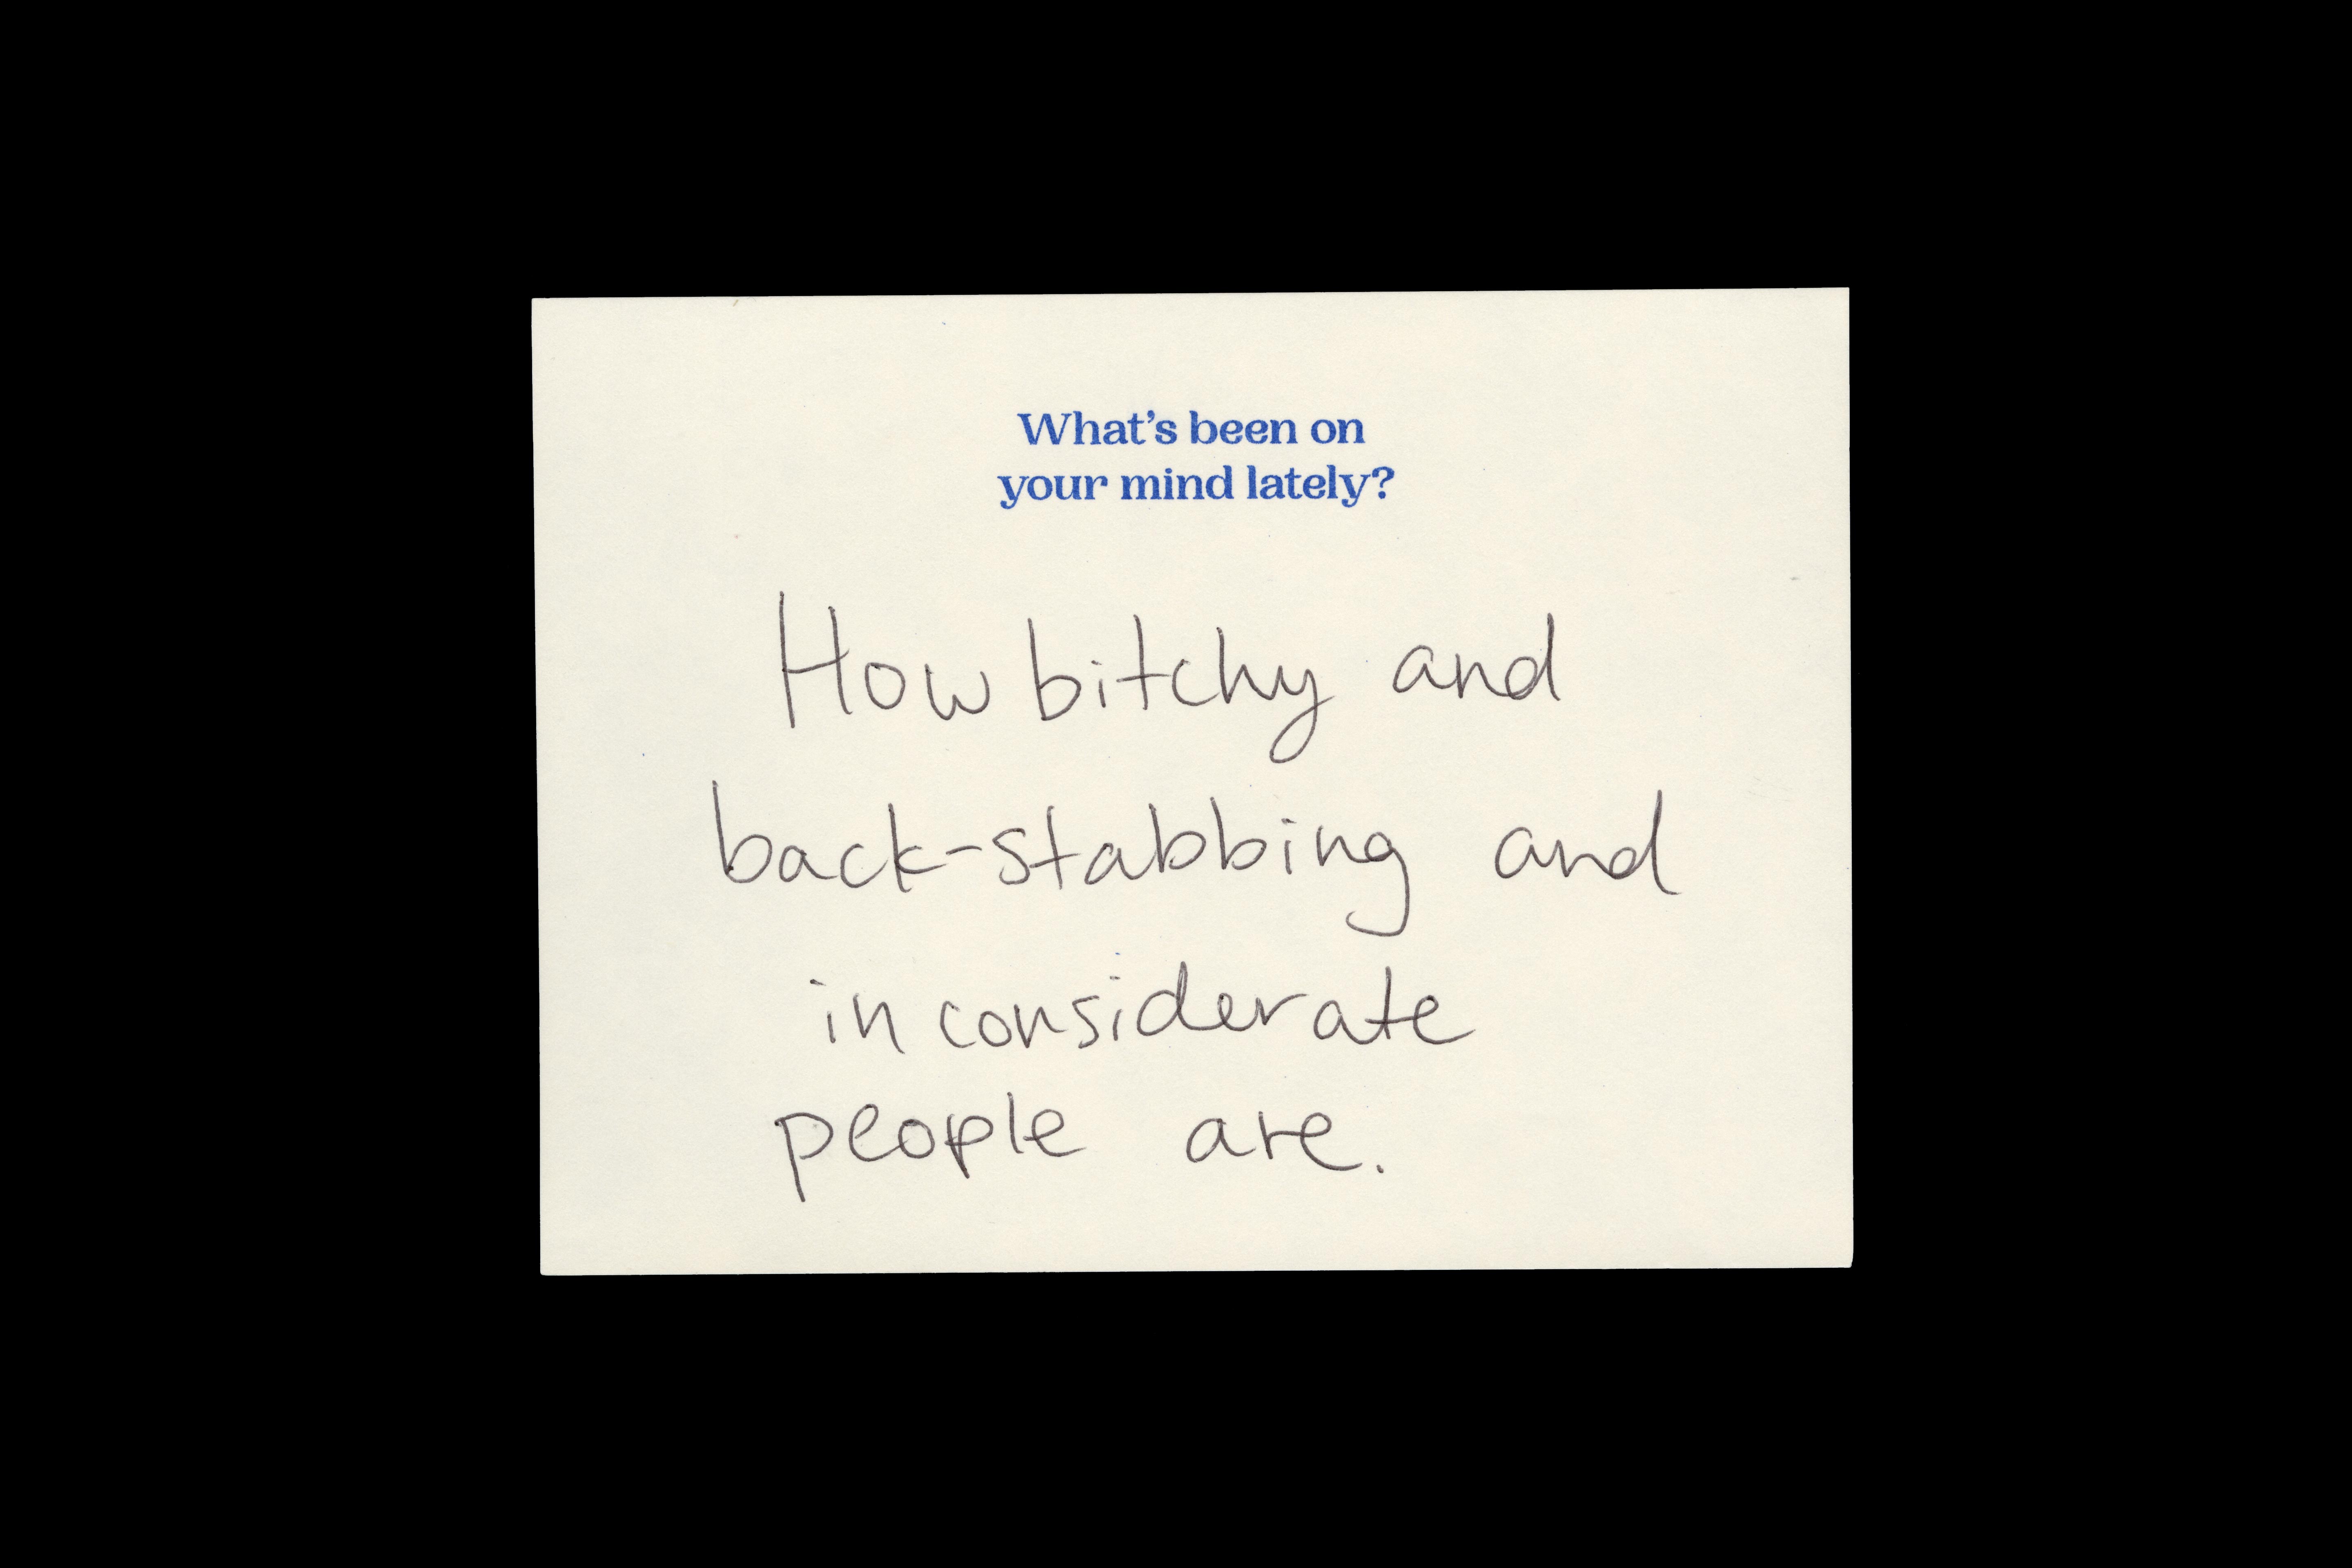 What's been on
your mind lately?
How bitchy and
back-stabbing and
inconsiderate
people are.